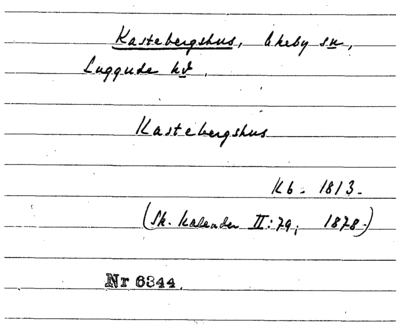 Kastebergshus, Ekeby sn,
Luggude hd.
Kastebergshus
Kb. 1813.
(Sk. Kalender II:79; 1878.)
Nr 6344.